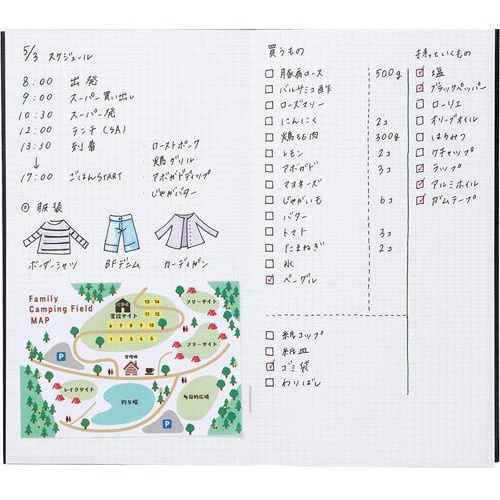 5/3 スケジュール
8:00 出発
9:00 スーパー買い出し
10:30 スーパー発
12:00 ランチ (SA)
13:30 到着
↓
・ローストポーク
・鶏グリル
・アボガドディップ
・じゃがバター
17:00 ごはんSTART
服装
ボーダーシャツ
BFデニム
カーディガン
Family
Camping Field
MAP
常設サイト
13 14
11 12
6 7 8 9 10
1 2 3 4 5
フリーサイト
フリーサイト
管理棟
P
レイクサイト
釣り場
多目的広場
P
買うもの
豚肩ロース 500g
バルサミコ酢
ローズマリー
にんにく 2コ
鶏もも肉 300g
レモン 2コ
アボガド 3コ
マヨネーズ
じゃがいも 6コ
バター
トマト 3コ
たまねぎ 2コ
氷
ベーグル
紙コップ
紙皿
ゴミ袋
わりばし
持っていくもの
塩
ブラックペッパー
ローリエ
オリーブオイル
はちみつ
ケチャップ
ラップ
アルミホイル
ガムテープ